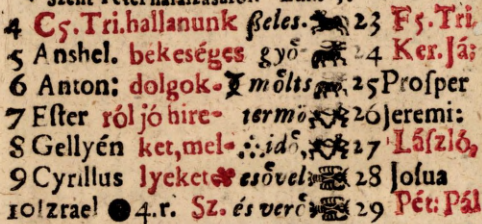 4 C5. Tri. hallanunk ßeles. 23 F5. Tri
5 Anshel. bekeséges gyö- 24 Ker. Já:
6 Anton: dolgok- mölts 25 Prosper
7 Ester ról jó hire- termö 26 Jeremi:
8 Gellyén ket, mel- idö, 27 László,
9 Cyrillus lyeket esövel 28 Josua
10 Izrael 4. r. Sz. és verö 29 Pét: Pál